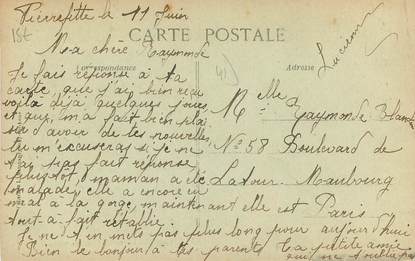 Pierrefitte le 11 Juin
15t
Ma chère Raymonde
CARTE POSTALE
Correspondance
Adresse
41
Lucienne
Je fais réponse à ta
carte que j'ai bien reçu
voilà déjà quelques jours
et qui m'a fait bien plai
sir d'avoir de tes nouvelles
tu m'excuseras si je ne
t'ai pas fait réponse
plus tot maman a été
malade, elle a encore eu
mal à la gorge maintenant elle est
tout à fait rétablie.
Je ne t'en mets pas plus long pour aujourd'hui
Bien le bonjour à tes parents Ta petite amie
qui ne t'oublie pas
Mlle Raymonde
No 58 Boulevard de
Latour-Maubourg
Paris